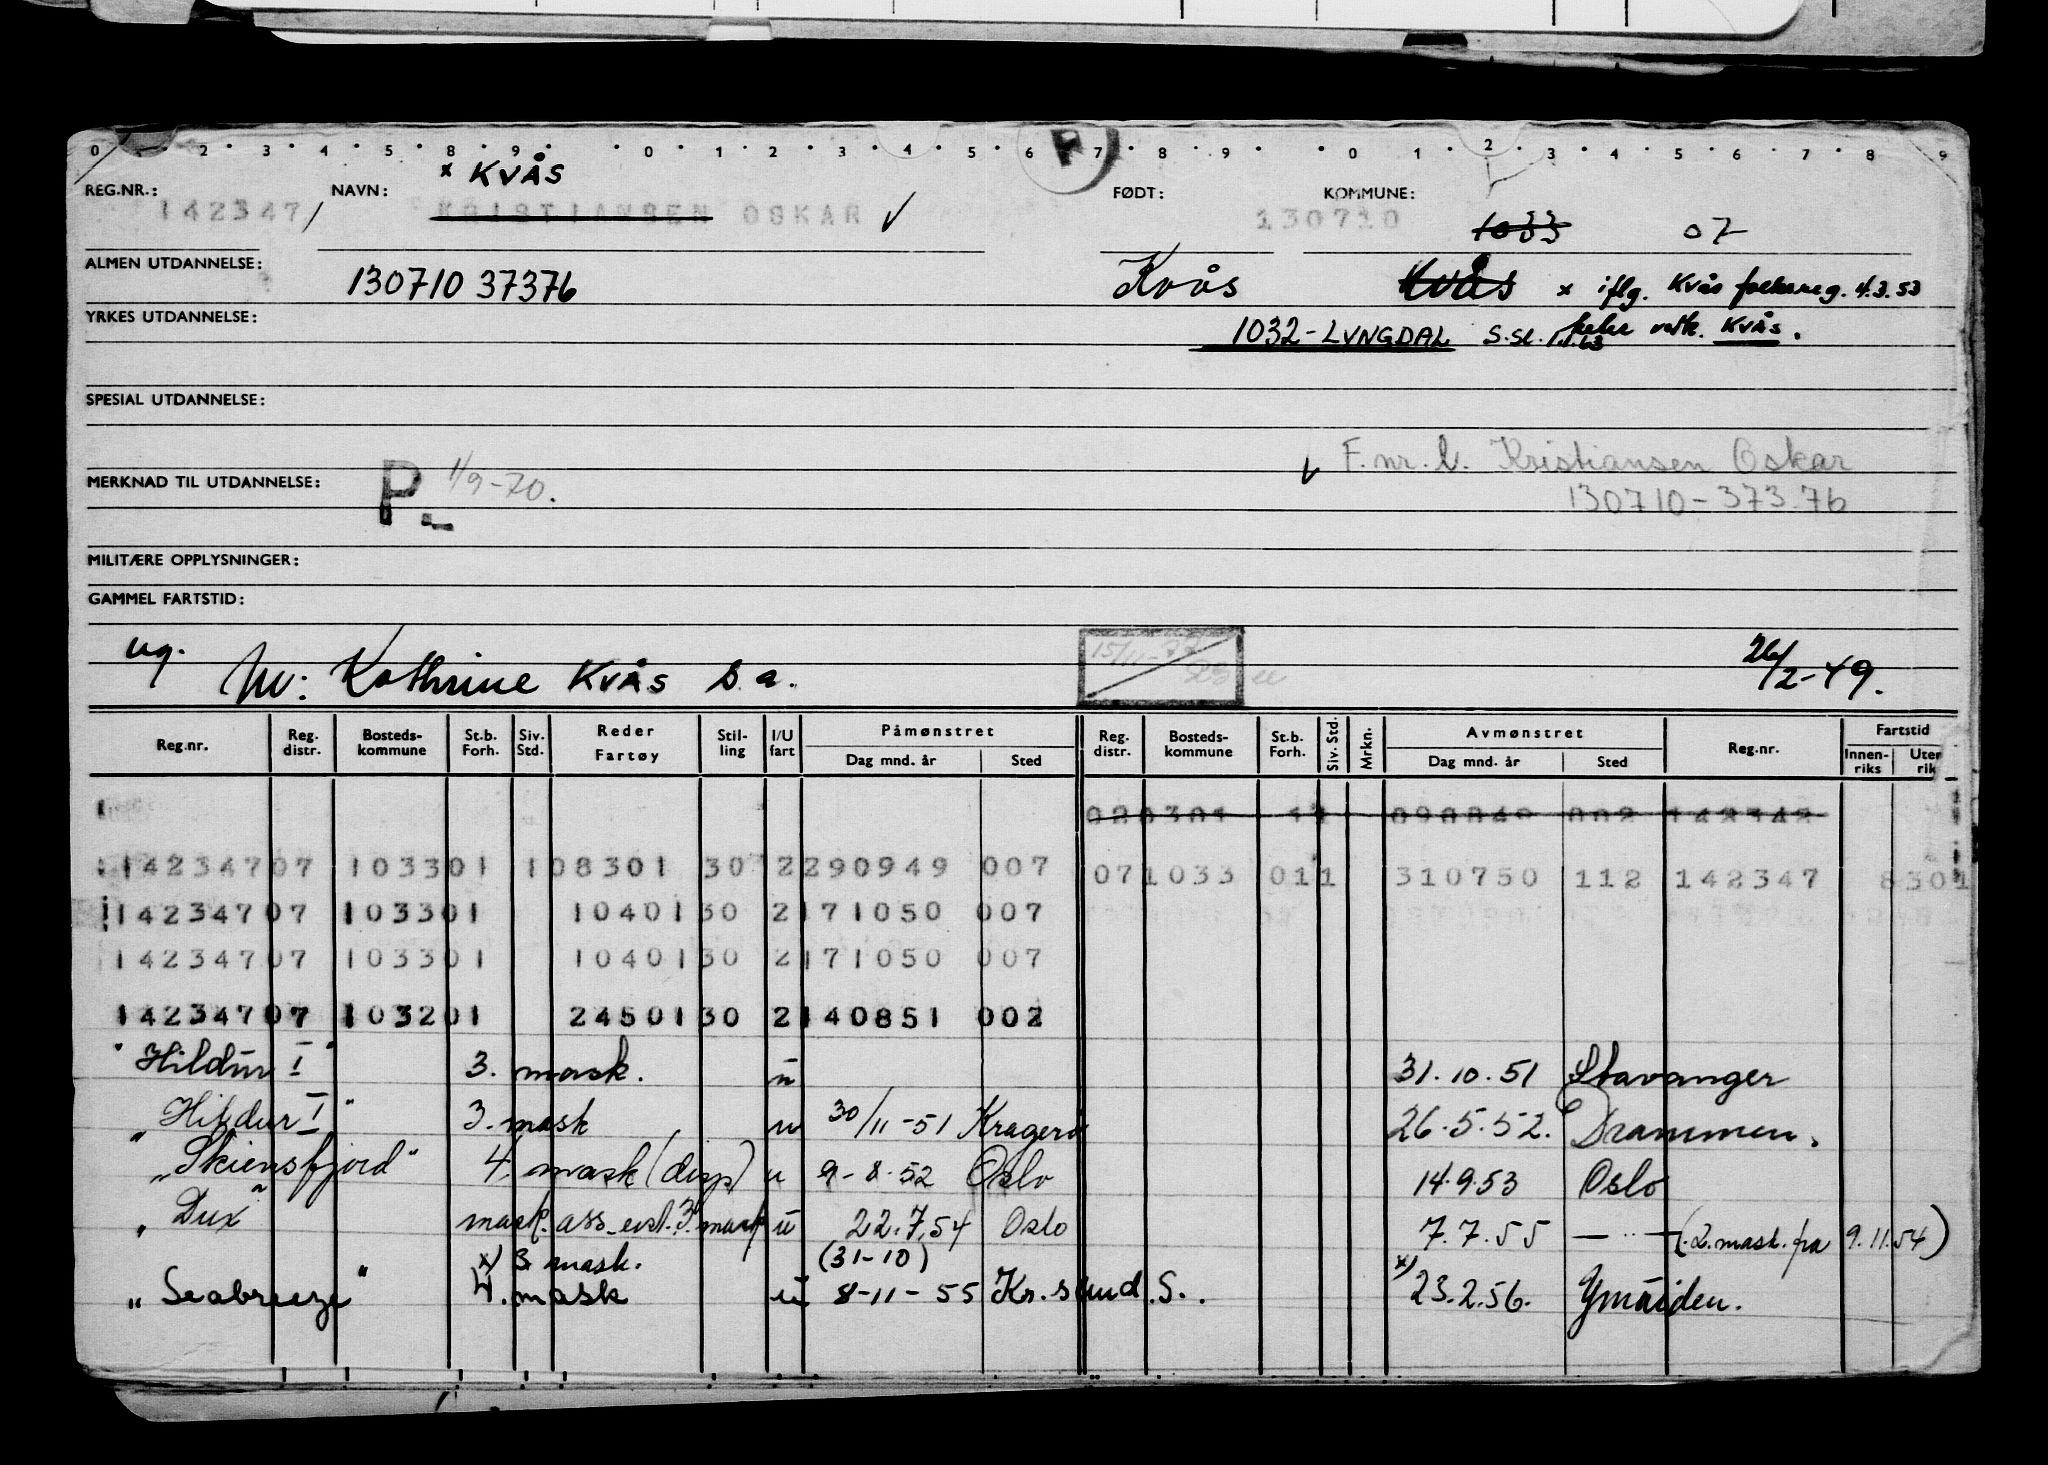 0 · · 2 · 3 · 4 · 5 · 8 · 9 · · 0 · 1 · 2 · 3 · 4 · 5 · 6 F 7 · 8 · 9 · · 0 · 1 · 2 · 3 · 4 · 5 · 6 · 7 · 8 9
x KVÅS
REG.NR.: NAVN: FØDT: KOMMUNE:
142347/ KRISTIANSEN OSKAR √ 130710 1033 07
ALMEN UTDANNELSE: 130710 37376 Kvås Kvås x iflg. Kvås folkereg. 4.3.53
YRKES UTDANNELSE: 1032-LYNGDAL S.sl. 1.1.63 vedk. KVÅS.
SPESIAL UTDANNELSE:
√ F.nr. Kristiansen Oskar
MERKNAD TIL UTDANNELSE: P. 1/9-70. 130710-373.76
MILITÆRE OPPLYSNINGER:
GAMMEL FARTSTID:
ug. M: Kathrine KVÅS s.a. 15/11-77 26/2-49.
Reg.nr. Reg. distr. Bosteds-kommune St.b. Forh. Siv. Std. Reder Fartøy Stil-ling I/U fart Påmønstret Dag mnd. år Sted Reg. distr. Bosteds-kommune St.b. Forh. Siv. Std. Mrkn. Avmønstret Dag mnd. år Sted Reg.nr. Fartstid Innen-riks Uten rik
020301 11 090849 002 142342
142347 07 1033 01 1 08301 30 2 290949 007 07 1033 01 1 310750 112 142347 8301
142347 07 1033 01 10401 30 2 171050 007
142347 07 1033 01 10401 30 2 171050 007
142347 07 1032 01 24501 30 2 140851 002
"Hildur I" 3. mask. u 31.10.51 Stavanger
"Hildur I" 3. mask u 30/11-51 Kragerø 26.5.52. Drammen.
"Skiensfjord" 4. mask (disp) u 9-8-52 Oslo 14.9.53 Oslo
"Dux" mask. ass. evt. 3. mask u 22.7.54 Oslo 7.7.55 — " — (2. mask. fra 9.11.54)
x) 3 mask. (31-10)
"Seabreeze" 4. mask u 8-11-55 Kr.sund.S. x) 23.2.56. Ymuiden.